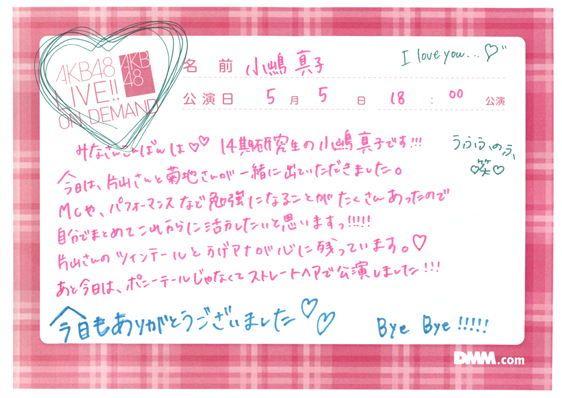 AKB48
LIVE!!
ON DEMAND
AKB
48
名 前 小嶋 真子
I love you...♡
公演日 5月 5日 18:00 公演
みなさんこんばんは♡♡ 14期研究生の小嶋真子です!!!
うふふ、のふ、
笑
♡♡
今日は、片山さんと菊地さんが一緒に出ていただきました。
MCや、パフォーマンスなど勉強になることがたくさんあったので
自分でまとめてこれからに活かしたいと思いますっ!!!!!
片山さんのツインテールとうげアナが心に残っています。♡
あと今日は、ポニーテールじゃなくてストレートヘアで公演しました!!!
今日もありがとうございました♡♡
Bye Bye!!!!!
DMM.com